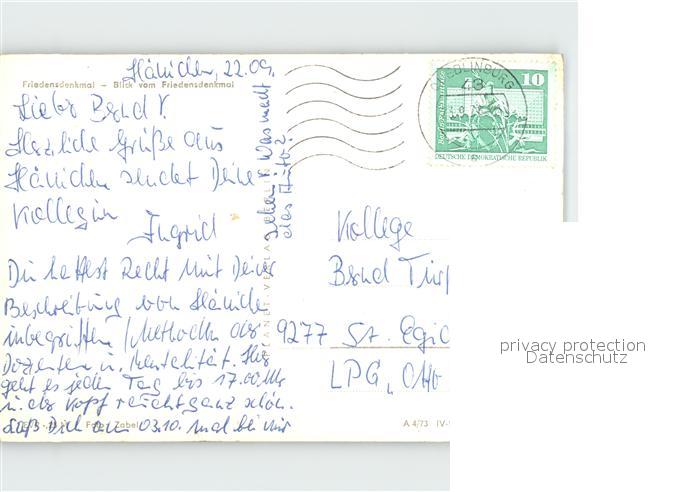 Hänichen, 22.09.
Friedensdenkmal – Blick vom Friedensdenkmal
Lieber Bernd!
Herzliche Grüße aus
Hänichen sendet Deine
Kollegin
Ingrid
Du hattest Recht mit Deiner
Beschreibung von Hänichen
inbegriffen (Methoden der
Dozenten u. Mentalität. Hier
geht es jeden Tag bis 17.00 Uhr
u. der Kopf raucht ganz schön.
Laß Dich am 03.10. mal bei mir
sehen! Was macht
das Auto?
Foto: Zabel
PLANET-VERLAG BERLIN
QUEDLINBURG
10
DEUTSCHE DEMOKRATISCHE REPUBLIK
Kollege
Bernd
9277 St. Egid
LPG „Otto
A 4/73 IV-
privacy protection
Datenschutz